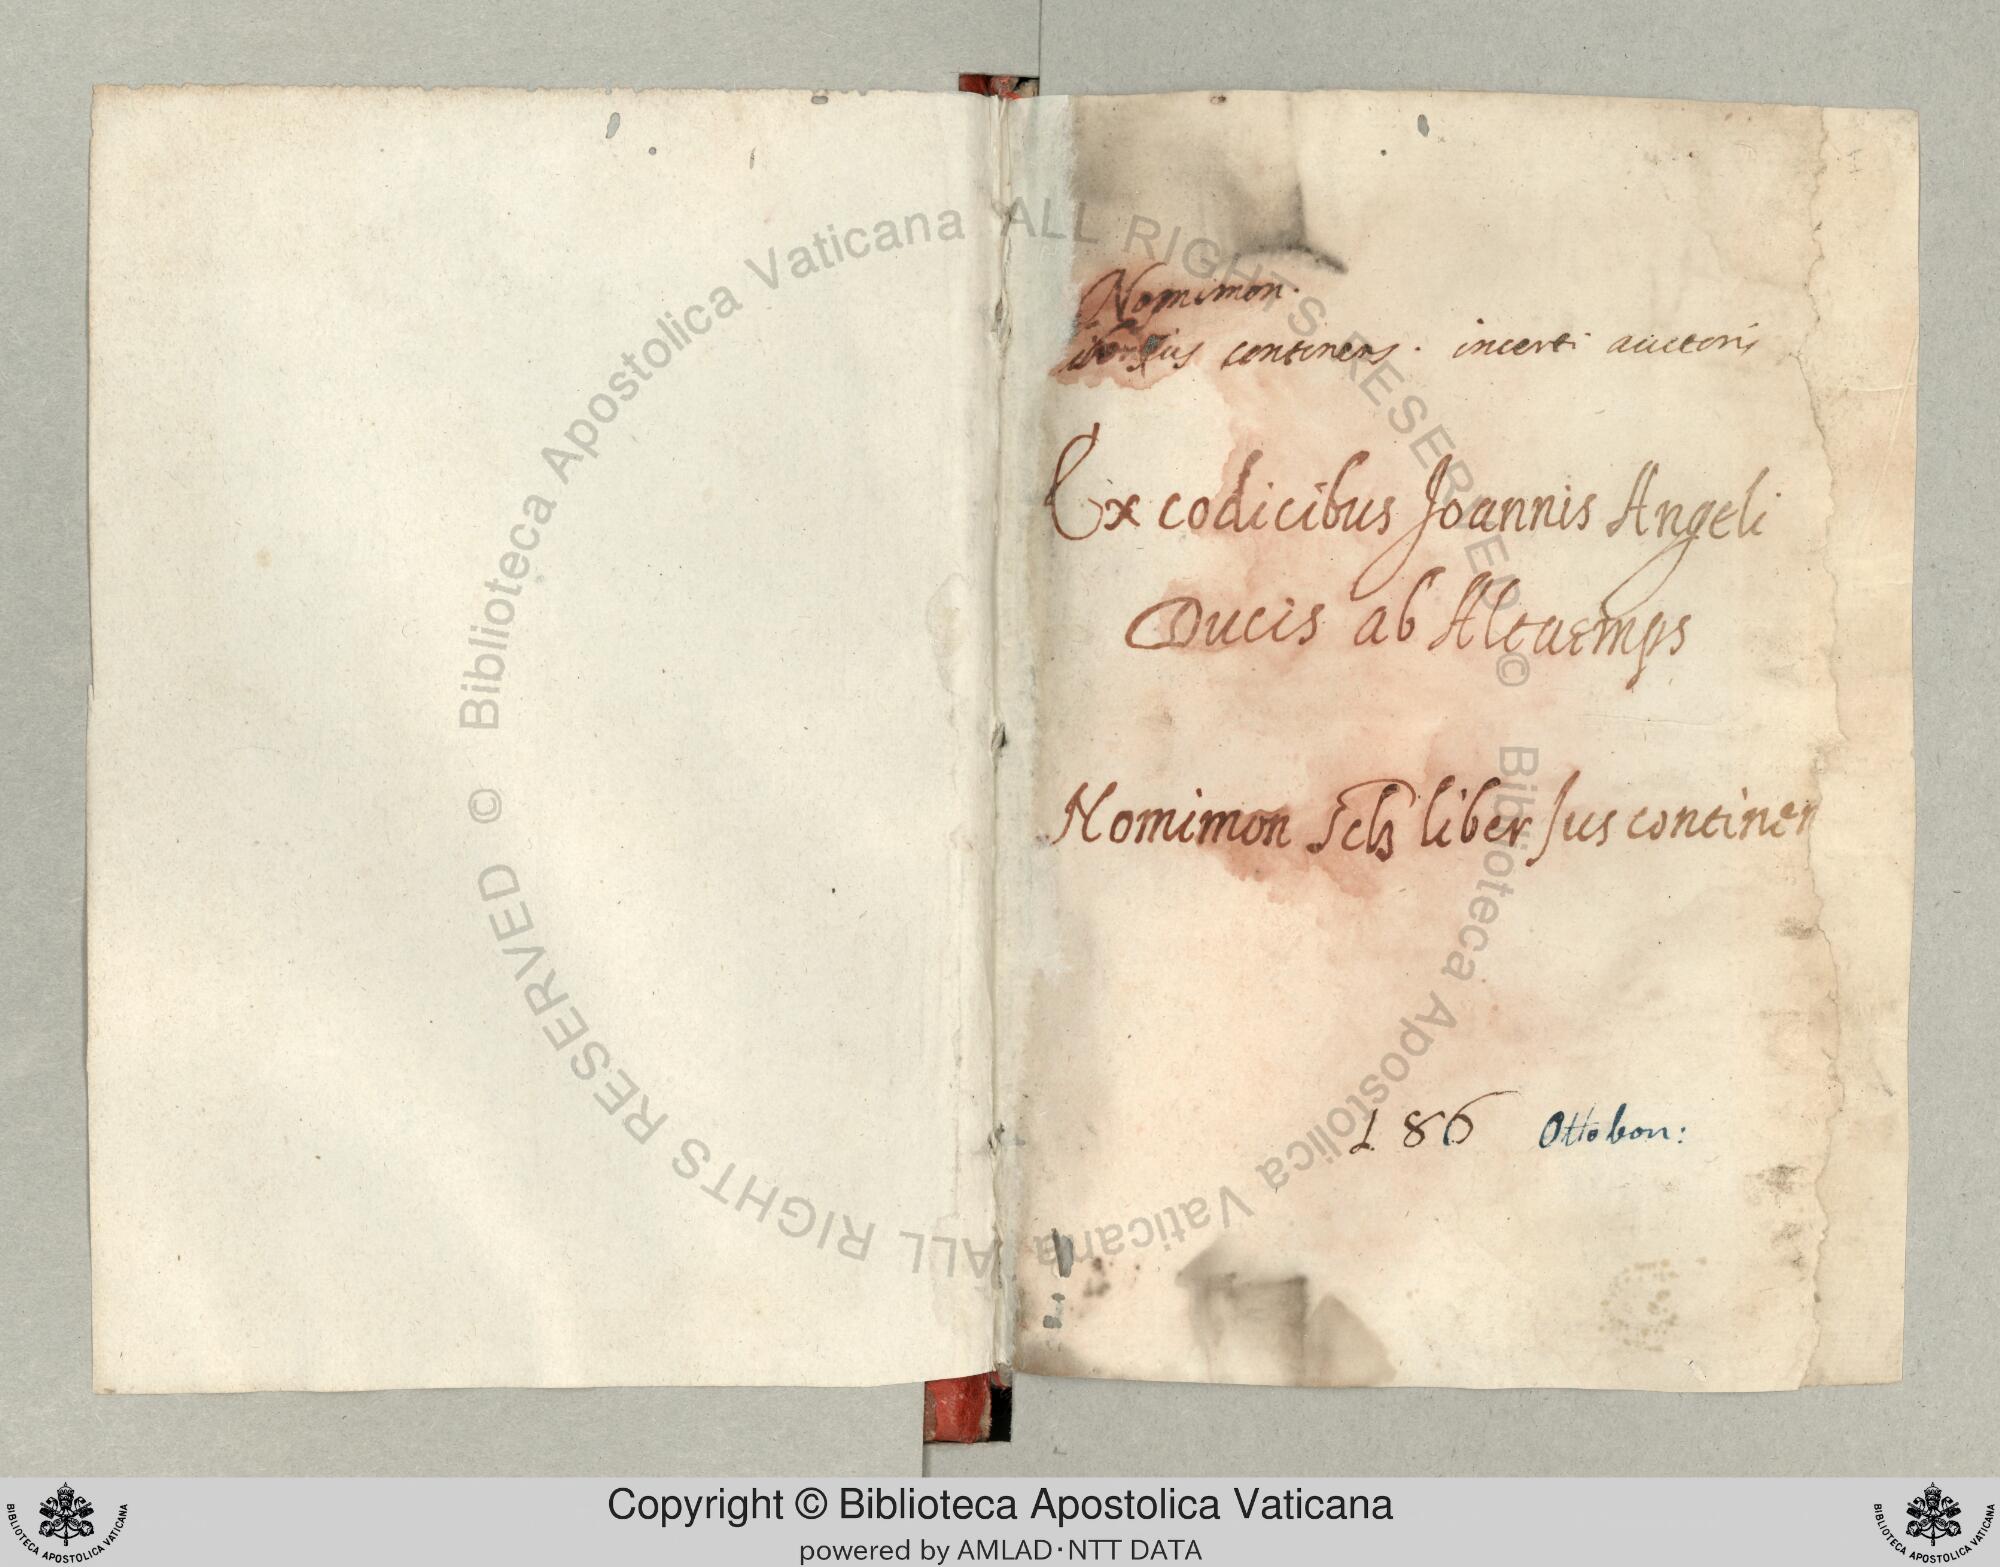 Nomimon.
ius continens. incerti auctoris
Ex codicibus Joannis Angeli
Ducis ab Altaemps
Nomimon liber Jus continen
186 Ottobon:
© Biblioteca Apostolica Vaticana ALL RIGHTS RESERVED © Biblioteca Apostolica Vaticana ALL RIGHTS RESERVED
Copyright © Biblioteca Apostolica Vaticana
powered by AMLAD·NTT DATA
BIBLIOTECA APOSTOLICA VATICANA
BIBLIOTECA APOSTOLICA VATICANA